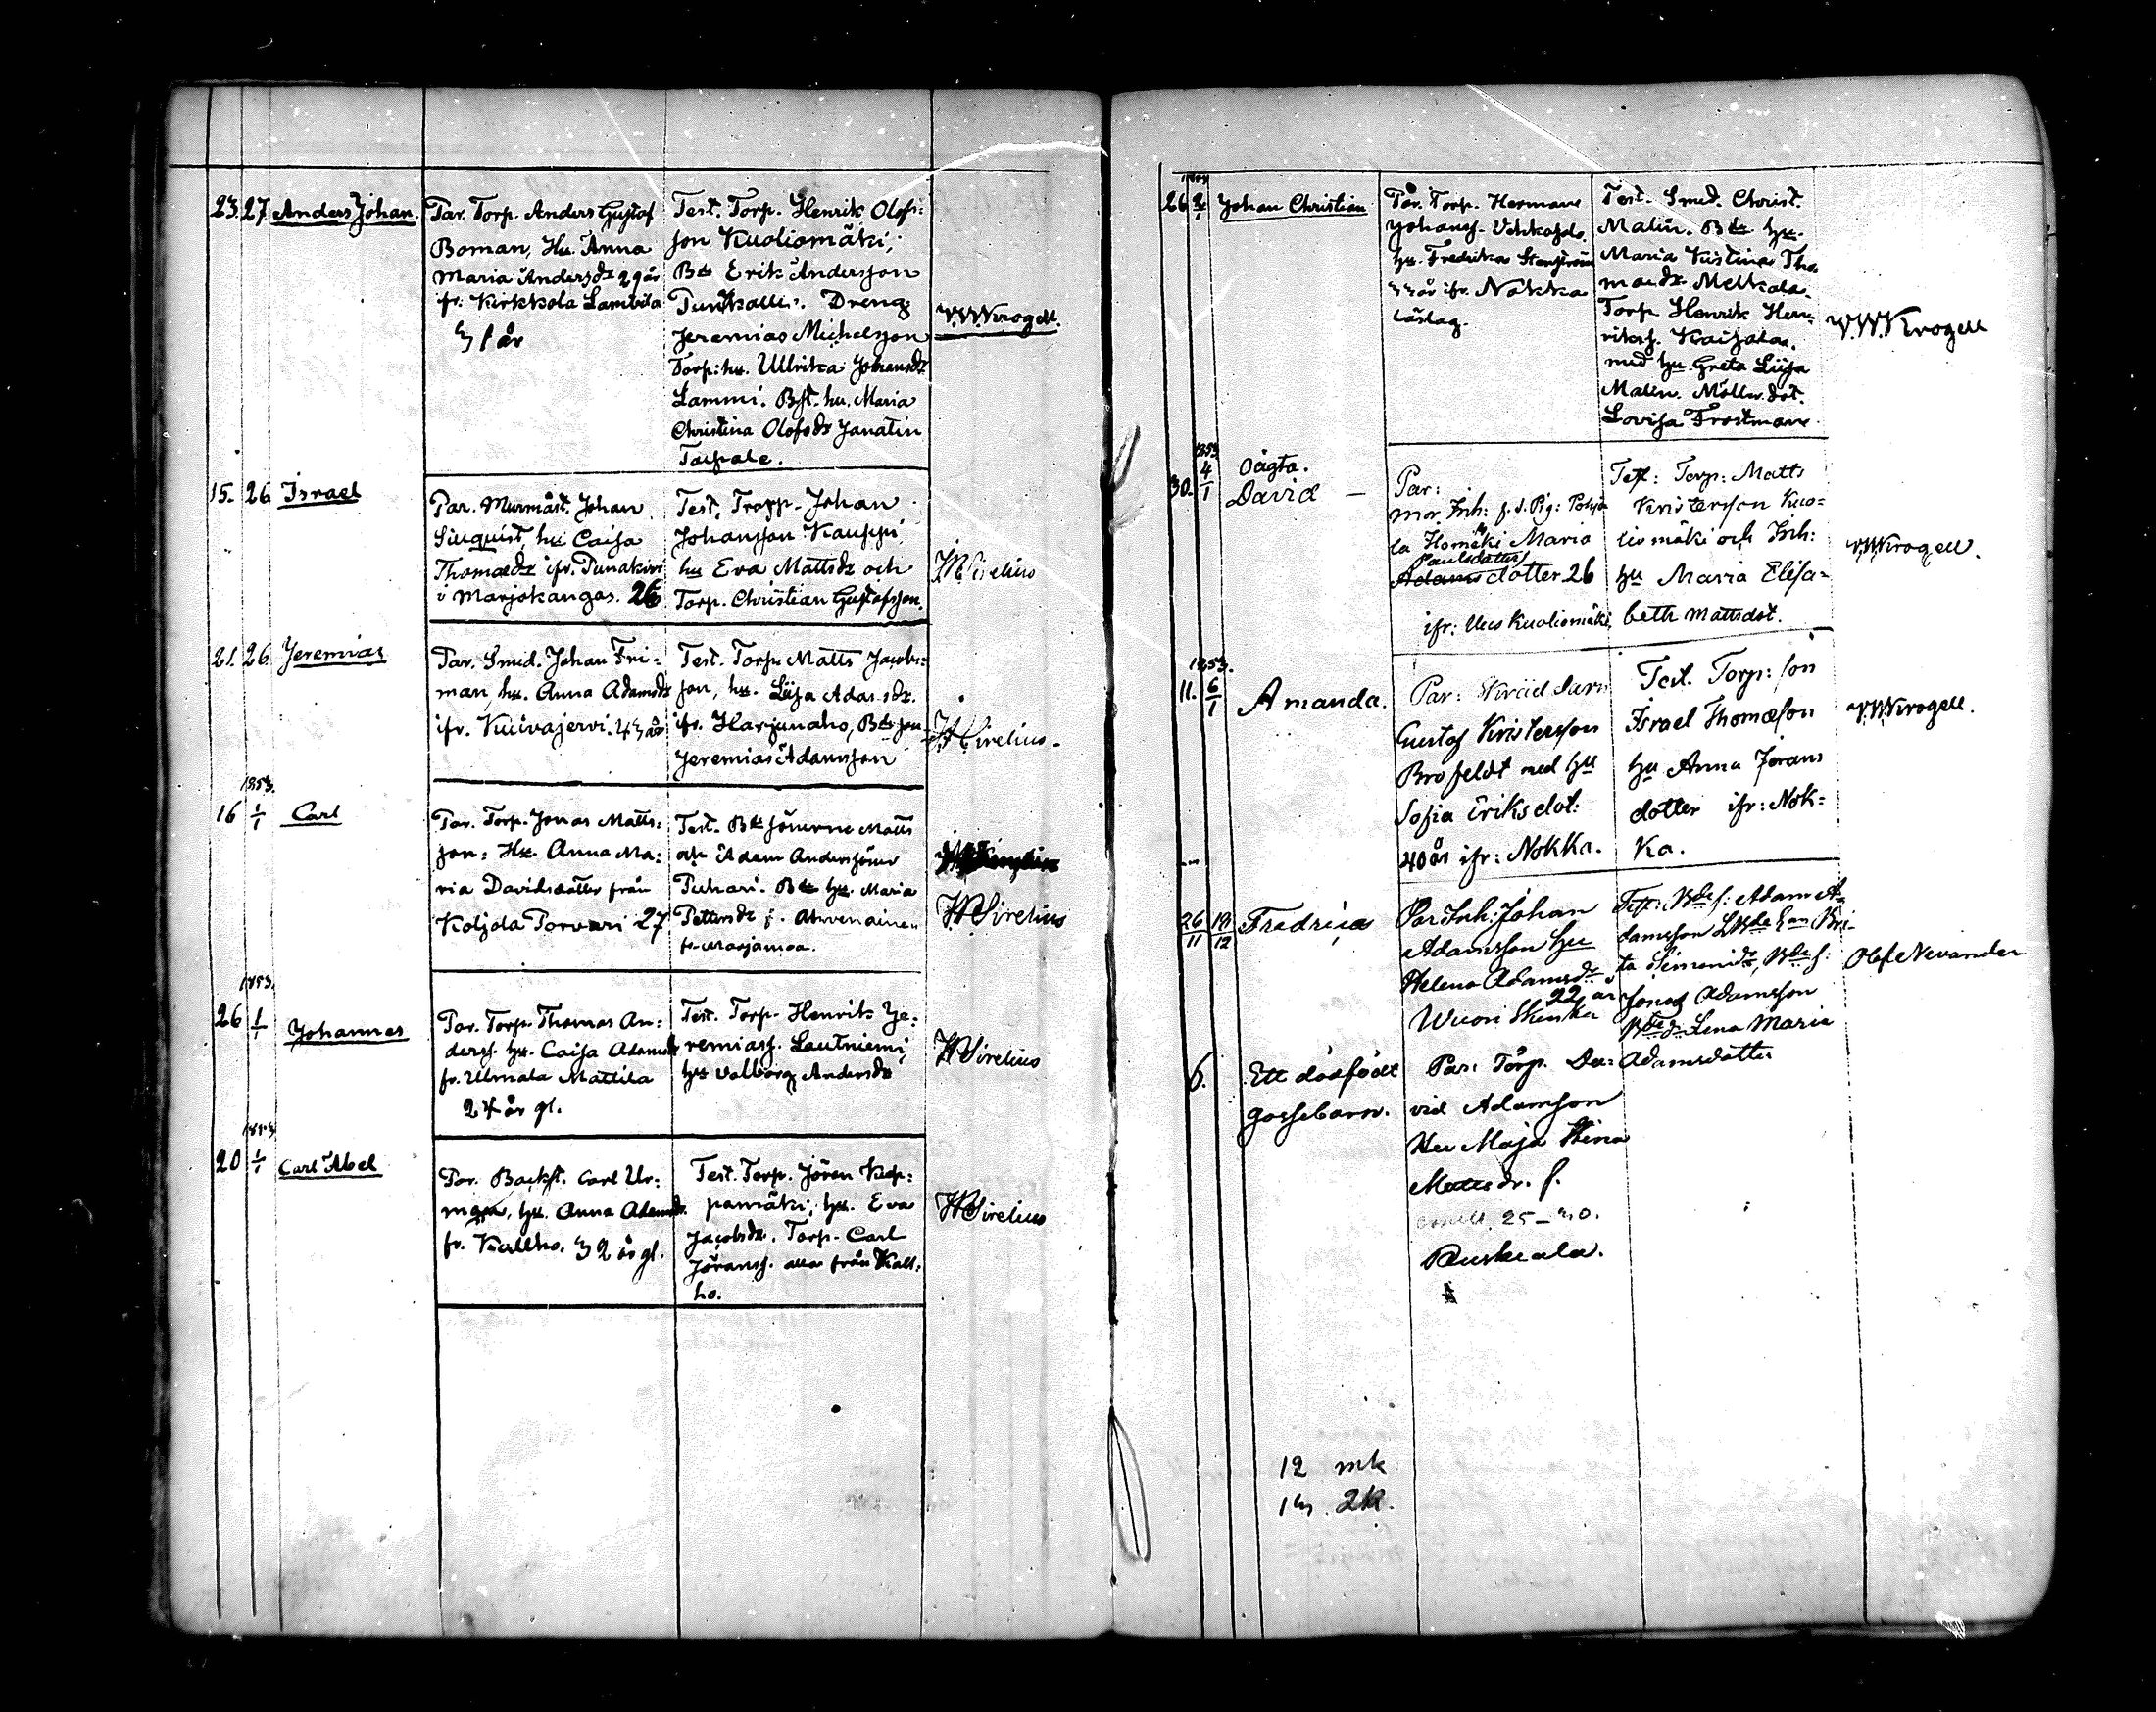 23. 27. Anders Johan.
Par. Torp. Anders Gustaf
Boman, Hu. Anna
Maria Andersdr 29 år
fr. Kirkkola Lambila
31 år
Test. Torp. Henrik Olofs:
son Kuoliomäki;
Bde Erik Andersson
Dreng
Jeremias Michelsson
Torp: hu. Ullrika Johansdr
Lammi. Bst. hu. Maria
Christina Olofsdr Janatin
Taipale.
V.W.Krogell.
15. 26 Israel
Par. Murmäst. Johan
hu Caisa
Thomædr ifr. Punakivi
i Marjokangas. 26
Test. Johan
Johansson Kauppi,
hu Eva Mattsdr och
Torp. Christian Gustafsson.
WSirelius
21. 26 Jeremias
Par. Smed. Johan Fri=
man, hu. Anna Adamsdr
ifr. Kuivajervi. 43 år
Test. Torp. Matts Jacobs=
son, hu. Liisa Adamsdr.
ifr. Harjunaho, Bdeson
Jeremias Adamsson
WSirelius.
1853.
16 1/1 Carl
Par. Torp. Jonas Matts:
son: Hu. Anna Ma:
ria Davidsdotter från
Koljola Torvari 27
Test. Bde sönerne Matts
och Adam Anderssöner
Puhari. Bde hu. Maria
Pettersdr f. Ahvenainen
fr. Marjamoa.
WSirelius
1853.
26 1/1 Johannes
Par. Torp. Thomas An:
derss. hu. Caisa Adamsdr
fr. Ulmala Mattila
24 år gl.
Test. Torp. Henrik Je:
remiass. Lautniemi,
hu Valborg Andersdr
WSirelius
1853
20 1/1 Carl Abel
Par. Backst. Carl Ur:
man, hu. Anna Adamsdr.
fr. Kallho. 32 år gl.
Test. Torp. Jöran Kop:
pamäki; hu. Eva
Jacobsdr. Torp. Carl
Jöranss. alla från Kall:
ho.
WSirelius
26 2/1 Johan Christian
Par. Torp. Herman
Johanss.
hu. Fredrika Stenström
33 år ifr. Nokka
Test. Smed. Christ.
Malin. Bde hu.
Maria Kristina Tho
mædr Melkola.
Torp Henrik Hen=
rikss. Kaijala.
med hu. Greta Liisa
Malin. Möllar.dot.
Lovisa Frostman
V.W.Krogell
1853
30. 4/1 Oägta.
David —
Par:
mor. Inh: f.d. Pig: Pohjo
la Homäki Maria
Paulsdotter
Adamsdotter 26
ifr: Uus Kuoliomäki
Test: Torp: Matts
Kristersson Kuo=
liomäki och Inh:
hu Maria Elisa=
beth Mattsdot.
V.W.Krogell.
1853.
11. 6/1 Amanda.
Par: Skräddarn
Gustaf Kristersson
Brofeldt med hu
Sofia Eriksdot:
40 år ifr: Nokka.
Test. Torp: son
Israel Thomæson
hu Anna Jörans
dotter ifr: Nok=
ka.
V.W.Krogell.
26/11 19/12 Fredrica
Par Inh: Johan
Adamsson hu
Helena Adamsdr
22 år
Wuori Skinka
Test: Bde s: Adam A=
damsson Bri=
ta Simonsdr, Bde s:
Jonas Adamsson
Bde dr Lena Maria
Adamsdotter
Olof Nevander
6. Ett dödfödt
gossebarn.
Par: Torp. Da=
vid Adamsson
Hu Maja Stina
Mattsdr. f.
emell. 25–30.
Ruskeala.
12 mk
13. 2k.